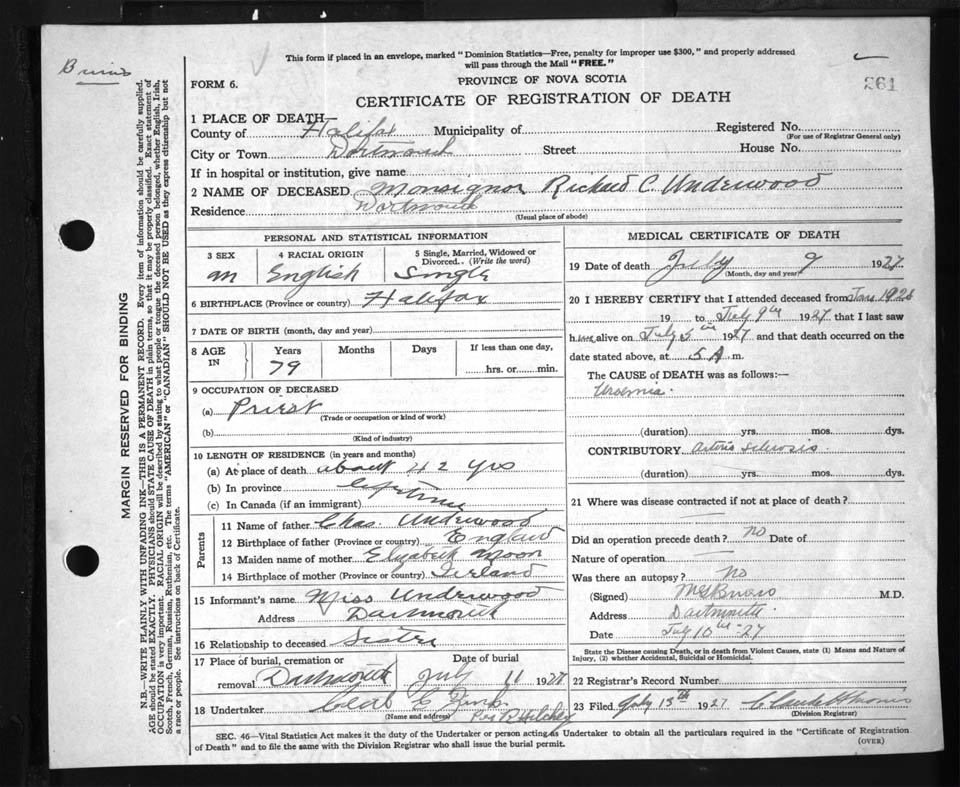 This form if placed in an envelope, marked "Dominion Statistics—Free, penalty for improper use $300," and properly addressed
will pass through the Mail "FREE."
FORM 6.
PROVINCE OF NOVA SCOTIA
261
CERTIFICATE OF REGISTRATION OF DEATH
1 PLACE OF DEATH—
County of Halifax Municipality of Registered No.
(For use of Registrar General only)
City or Town Dartmouth Street House No.
If in hospital or institution, give name
2 NAME OF DECEASED Monsignor Richard C. Underwood
Residence Dartmouth
(Usual place of abode)
PERSONAL AND STATISTICAL INFORMATION
3 SEX 4 RACIAL ORIGIN 5 Single, Married, Widowed or
Divorced.. (Write the word)
m English Single
6 BIRTHPLACE (Province or country) Halifax
7 DATE OF BIRTH (month, day and year)
8 AGE IN Years Months Days If less than one day,
79 hrs. or min.
9 OCCUPATION OF DECEASED
(a) Priest
(Trade or occupation or kind of work)
(b)
(Kind of industry)
10 LENGTH OF RESIDENCE (in years and months)
(a) At place of death about 42 yrs
(b) In province lifetime
(c) In Canada (if an immigrant)
Parents
11 Name of father Chas. Underwood
12 Birthplace of father (Province or country) England
13 Maiden name of mother Elizabeth Moon
14 Birthplace of mother (Province or country) Ireland
15 Informant's name Miss Underwood
Address Dartmouth
16 Relationship to deceased Sister
17 Place of burial, cremation or Date of burial
removal Dartmouth July 11 1927
18 Undertaker
(Name and address)
MEDICAL CERTIFICATE OF DEATH
19 Date of death July 9 1927
(Month, day and year)
20 I HEREBY CERTIFY that I attended deceased from Jan 1926
19 to July 9th 1927 that I last saw
h im alive on July 5th 1927 and that death occurred on the
date stated above, at 5 A m.
The CAUSE of DEATH was as follows:—
Uraemia.
(duration) yrs. mos. dys.
CONTRIBUTORY Arterio Sclerosis
(duration) yrs. mos. dys.
21 Where was disease contracted if not at place of death?
Did an operation precede death? no Date of
Nature of operation
Was there an autopsy? no
(Signed) M.D.
Address Dartmouth
Date July 10th - 27
State the Disease causing Death, or in death from Violent Causes, state (1) Means and Nature of
Injury, (2) whether Accidental, Suicidal or Homicidal.
22 Registrar's Record Number
23 Filed July 13th 1927
(Division Registrar)
SEC. 46—Vital Statistics Act makes it the duty of the Undertaker or person acting as Undertaker to obtain all the particulars required in the "Certificate of Registration
of Death" and to file the same with the Division Registrar who shall issue the burial permit.
(OVER)
MARGIN RESERVED FOR BINDING
N.B.—WRITE PLAINLY WITH UNFADING INK—THIS IS A PERMANENT RECORD. Every item of information should be carefully supplied.
AGE should be stated EXACTLY. PHYSICIANS should STATE CAUSE OF DEATH in plain terms, so that it may be properly classified. Exact statement of
OCCUPATION is very important. RACIAL ORIGIN will be described by stating to what people or tongue the deceased person belonged, whether English, Irish,
Scotch, French, German, Russian, Ruthenian, etc. The terms "AMERICAN" or "CANADIAN" SHOULD NOT BE USED as they express citizenship but not
a race or people. See instructions on back of Certificate.